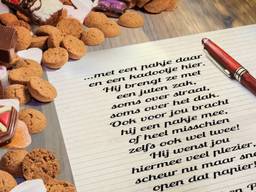 ...met een pakje daar
en een kadootje hier.
Hij brengt ze met
een juten zak,
soms over straat,
soms over het dak.
Ook voor jou bracht
hij een pakje mee.
of heel misschien
zelfs ook wel twee!
Hij wenst jou
hiermee veel plezier,
scheur nu maar sn
open dat papier